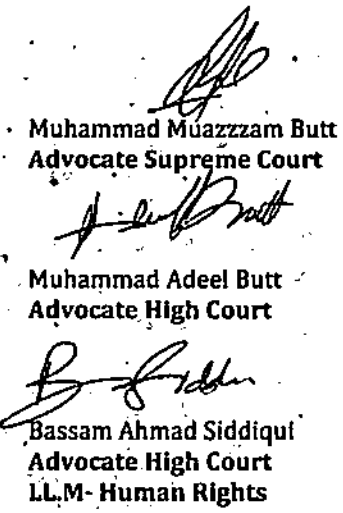 Muhammad Muazzzam Butt
Advocate Supreme Court
Muhammad Adeel Butt
Advocate High Court
Bassam Ahmad Siddiqui
Advocate High Court
LL.M- Human Rights